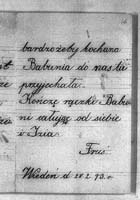 bardzożeby kochana
Babunia do nas tu
przyjechała.
Kończę rączki Babu-
ni całując od siebie
i Izia
Truś
Wiedeń d 28.2.93.